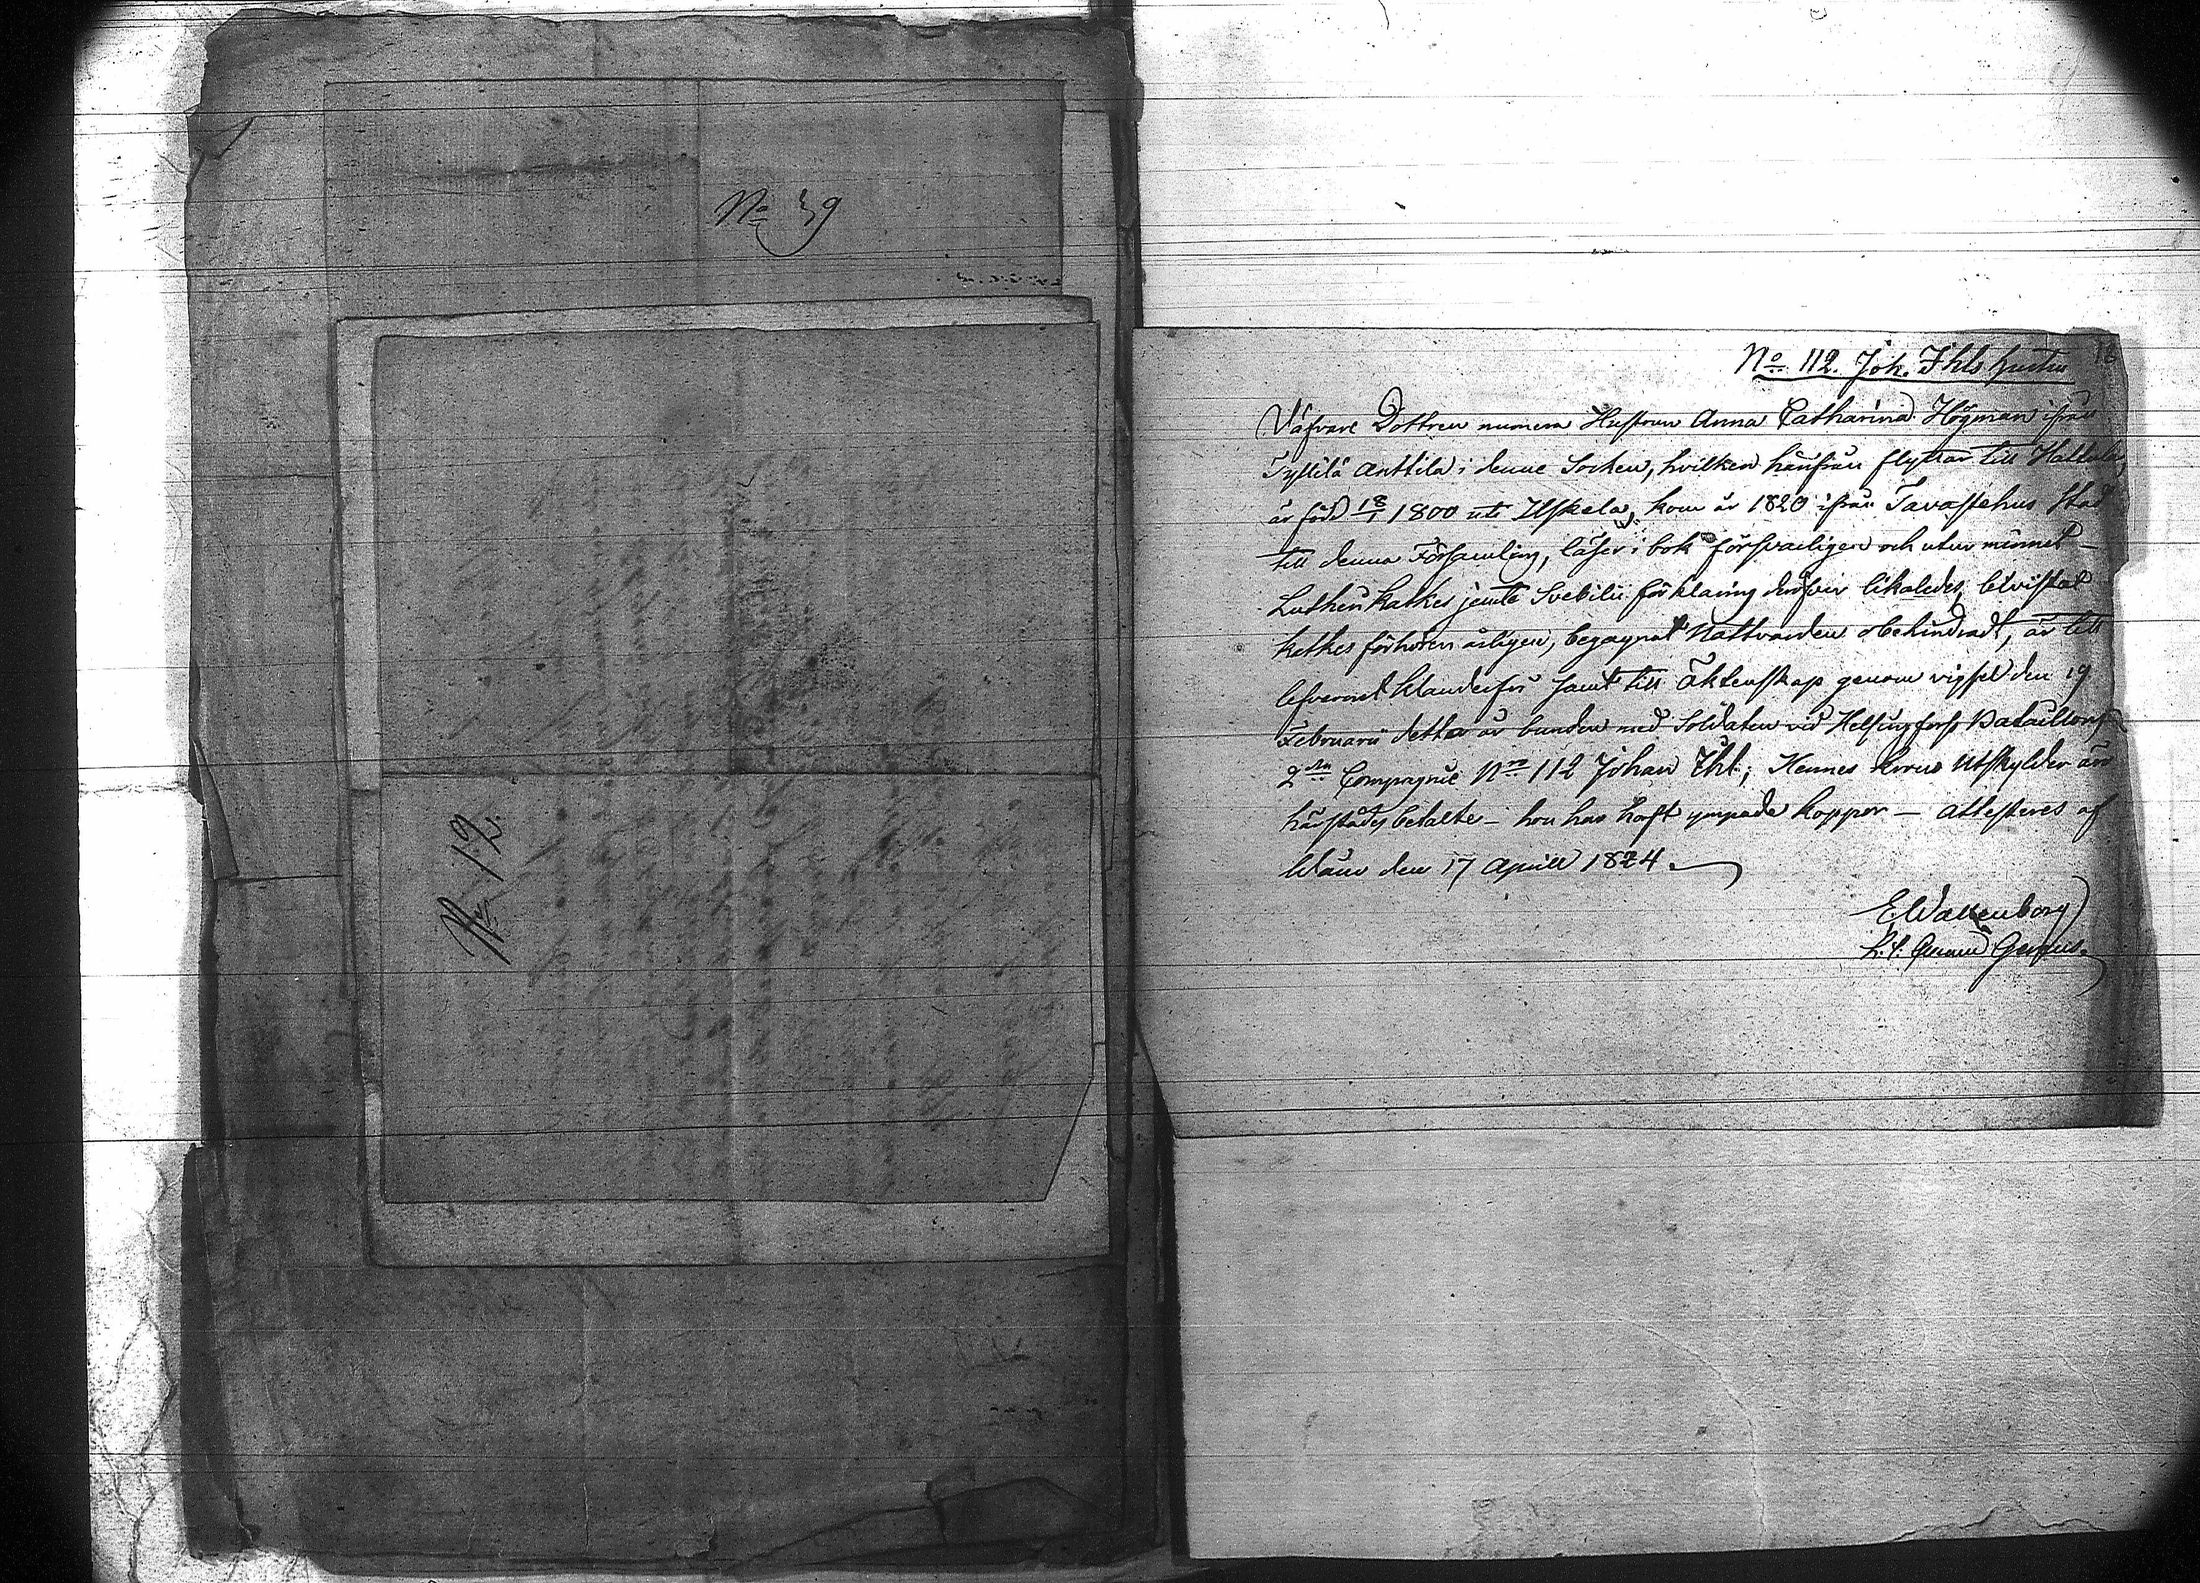 No 39
No 12.
No 112. Joh. Ihls hustru 16
Väfvare Dottren numera Hustrun Anna Catharina Högman ifrån
Anttila i denne Socken, hvilken härifrån flyttar till Hattula,
är född 18/1 1800 uti Uskela, kom år 1820 ifrån Tavastehus Stad
till denna Församling, läser i bok försvarligen och utur minnet –
Lutheri Katkes jemte Svebilii förklaring deröfver likaledes, bivistat
katkes förhören årligen, begagnat Nattvarden obehindradt, är till
lefvernet klanderfri samt till Äktenskap genom vigsel den 19
Februarii detta år bunden med Soldaten vid Helsingfors Bataillons
2dra Compagnie No 112 Johan Ihl; Hennes Krono Utskylder äro
härstädes betalte – hon har haft ympade koppor – attesteres af
den 17 Aprill 1824.
E. Wallenborg